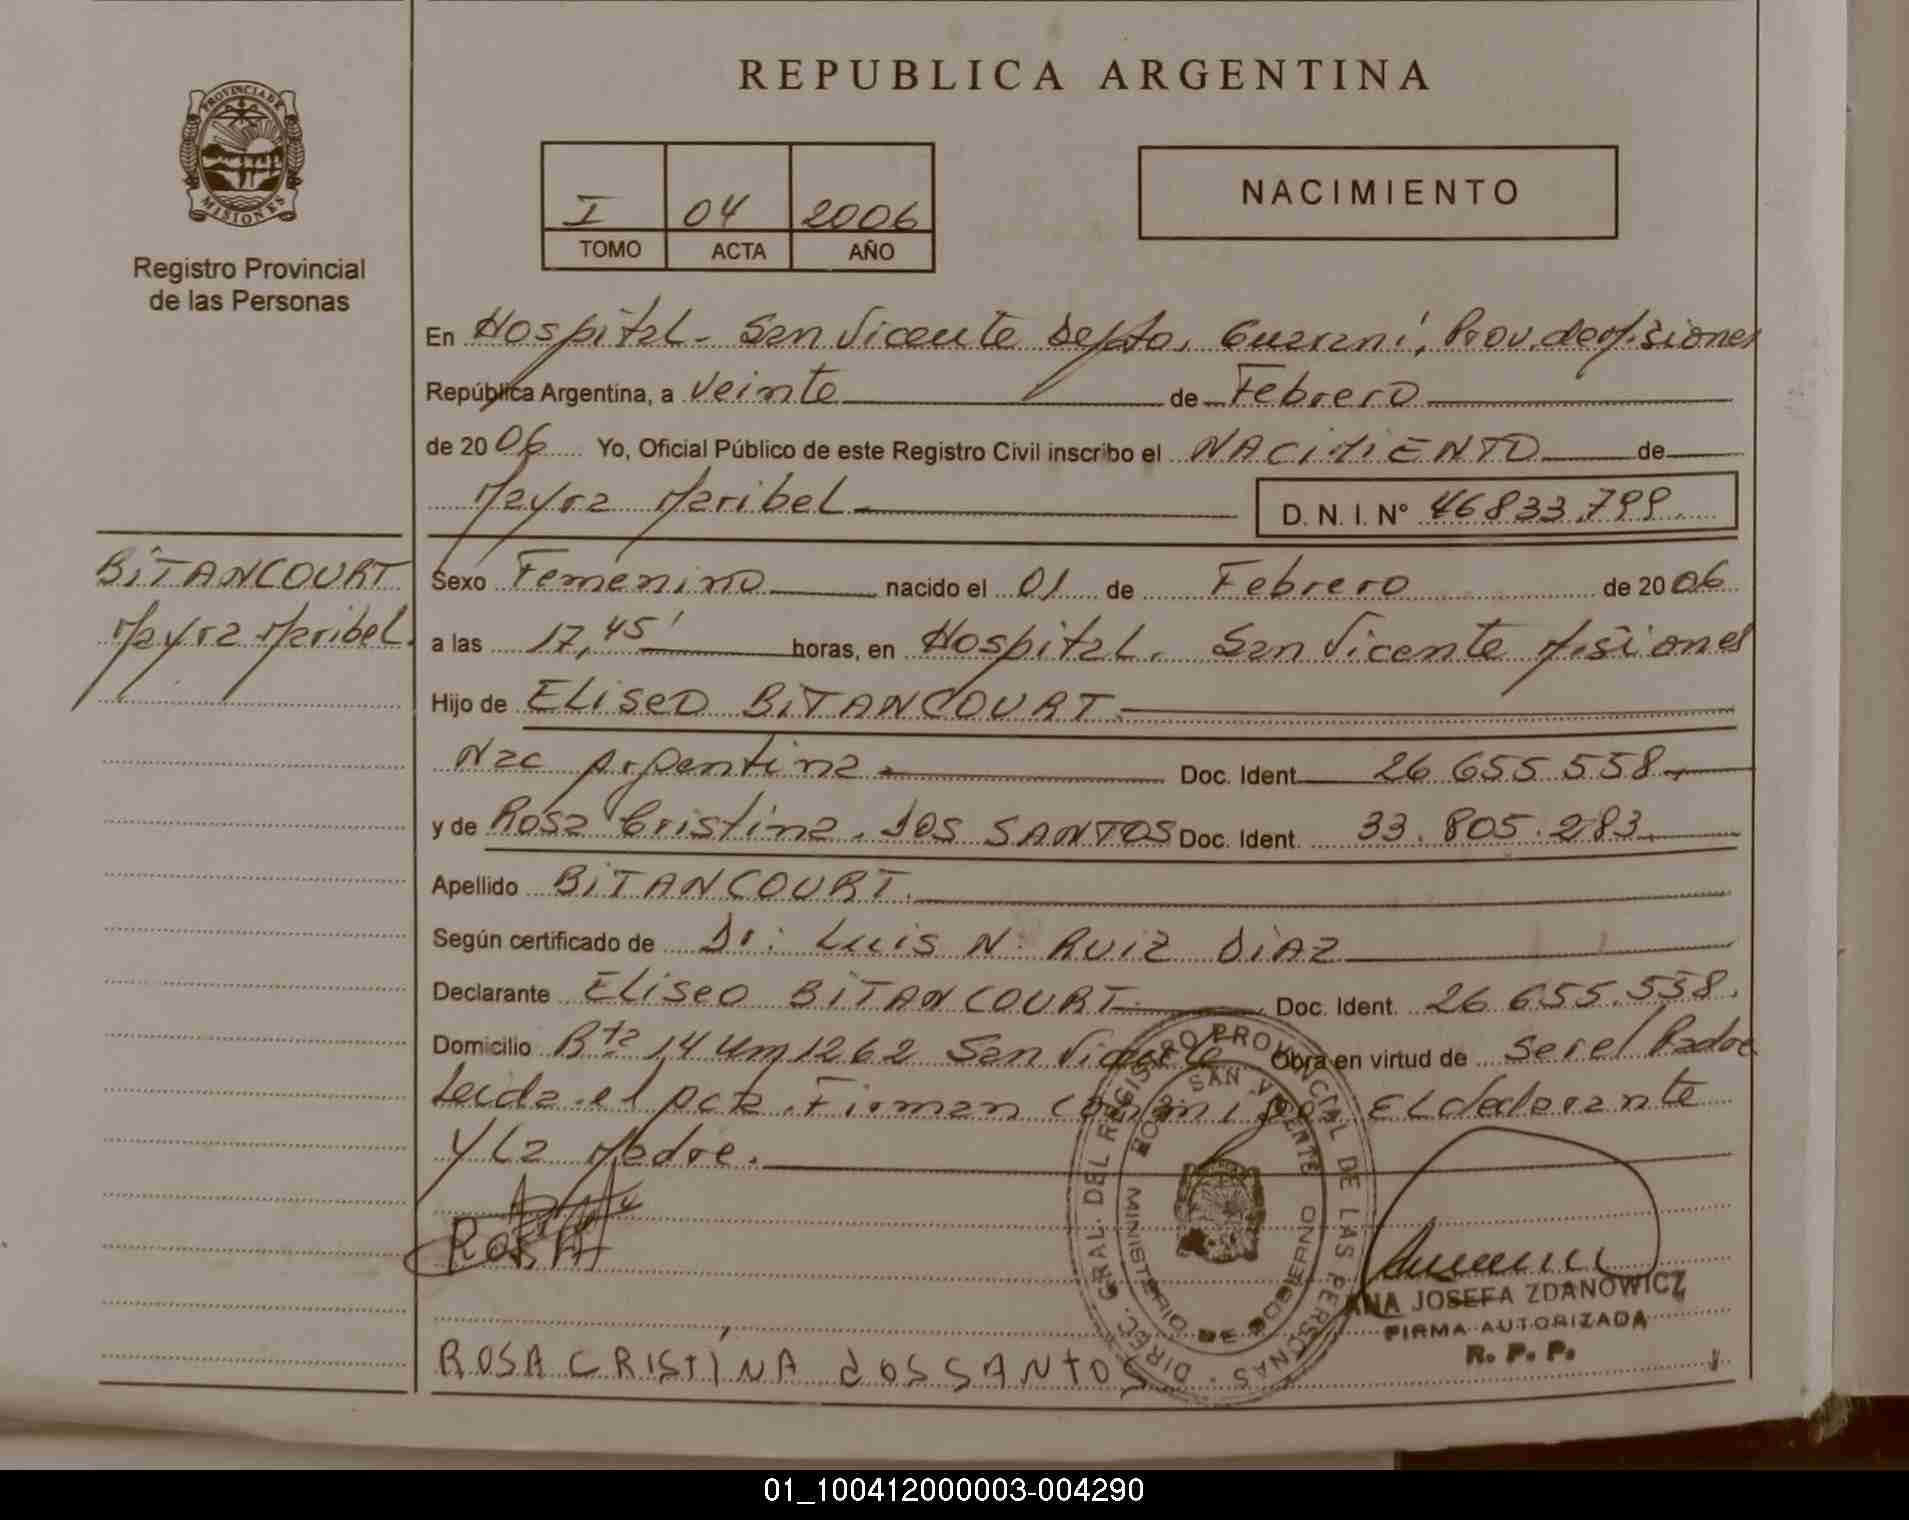 REPUBLICA ARGENTINA
PROVINCIA DE
MISIONES
Registro Provincial
de las Personas
I 04 2006
TOMO ACTA AÑO
NACIMIENTO
En Hospital. San Vicente Depto. Guarani, Prov. de Misiones
República Argentina, a Veinte de Febrero
de 2006 Yo, Oficial Público de este Registro Civil inscribo el NACIMIENTO de
Mayra Maribel. D. N. I. N° 46833.799.
BiTANCOURT
Mayra Maribel.
Sexo Femenino nacido el 01 de Febrero de 2006
a las 17,45' horas, en Hospital. San Vicente Misiones
Hijo de ELiseo BiTANCOURT.
Nac Argentina. Doc. Ident. 26 655 558.
y de Rosa Cristina. DOS SANTOS Doc. Ident. 33.805.283.
Apellido BiTANCOURT.
Según certificado de Dr: Luis N. RUiZ DiAZ
Declarante ELiseo BiTANCOURT. Doc. Ident. 26 655.558.
Domicilio Rta 14 Km 1262 San Vicente Obra en virtud de Ser el Padre
Leida el Acta. Firman conmigo EL declarante
y La Madre.
ROSA
ROSA CRISTINA dOS SANTOS
DIREC. GRAL. DEL REGISTRO PROVINCIAL DE LAS PERSONAS
SAN VICENTE
MINISTERIO DE GOBIERNO
ANA JOSEFA ZDANOWICZ
FIRMA AUTORIZADA
R. P. P.
01_100412000003-004290